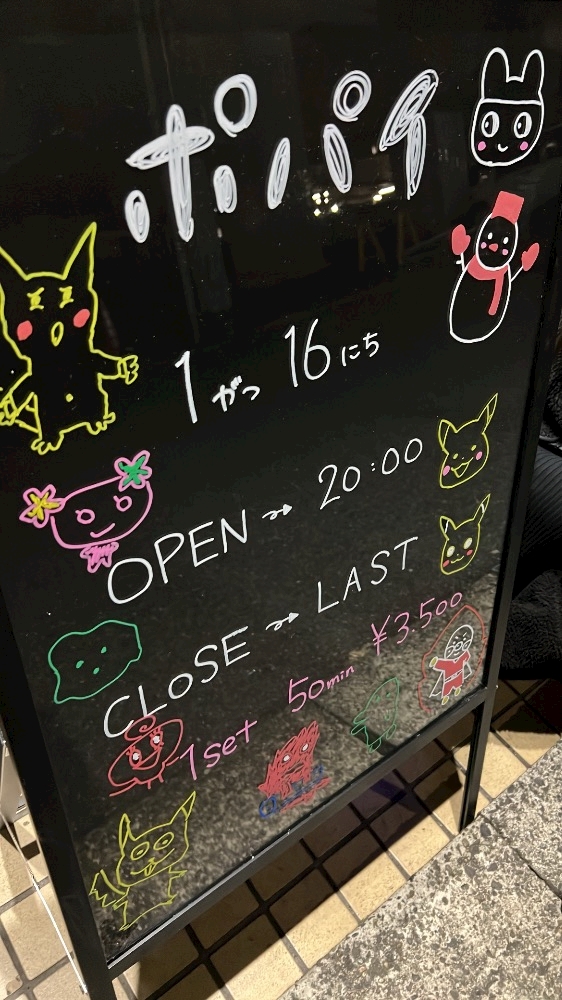 ポパイ
1がつ16にち
OPEN → 20:00
CLOSE → LAST
1set 50min ¥3.500